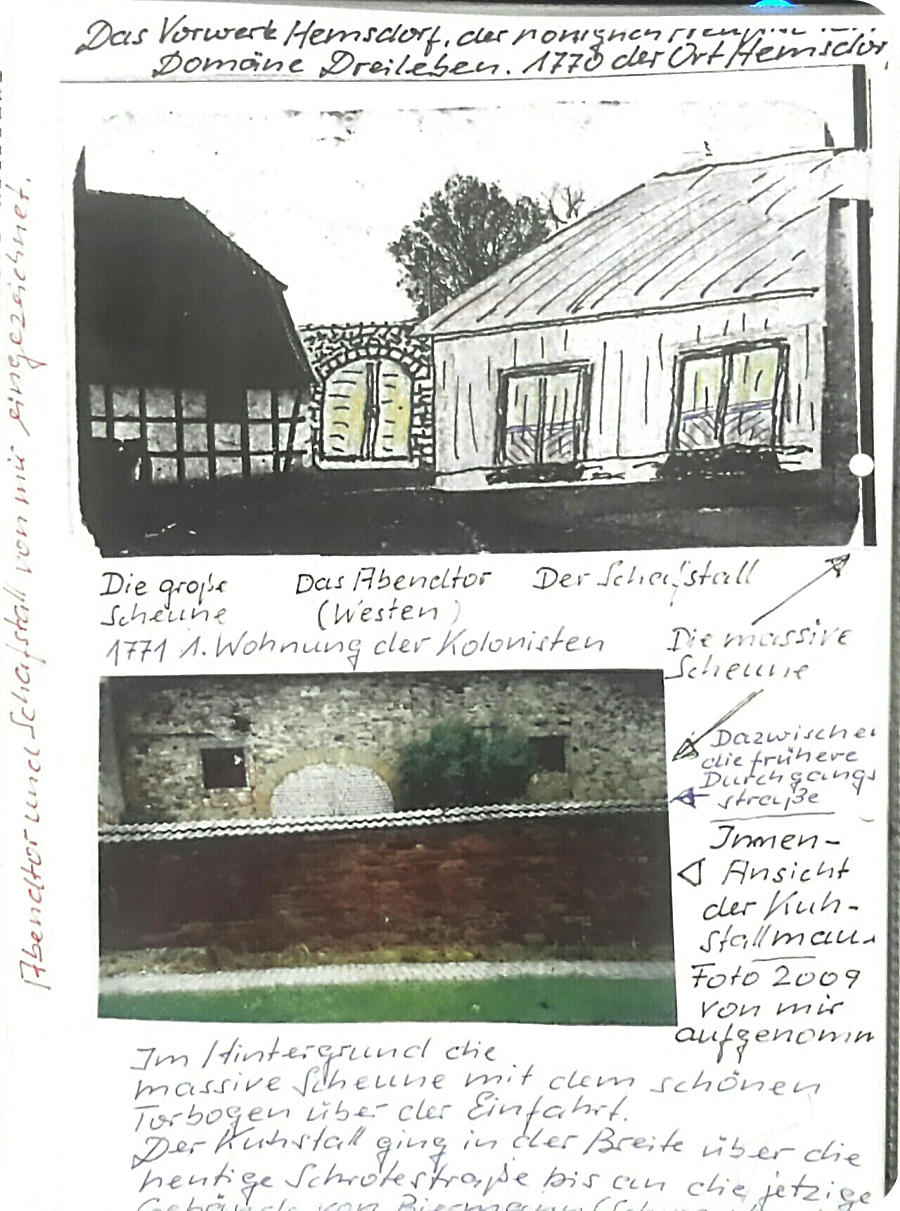 Das Vorwerk Hemsdorf, der
Domäne Dreileben. 1770 der Ort Hemsdor
Abendtor und Schafstall von mir eingezeichnet.
Die große
Scheune
Das Abendtor
(Westen)
Der Schafstall
1771 1. Wohnung der Kolonisten
Die massive
Scheune
Dazwischen
die frühere
Durchgangs
straße
Innen-
Ansicht
der Kuh-
stallmau
Foto 2009
von mir
aufgenomm
Im Hintergrund die
massive Scheune mit dem schönen
Torbogen über der Einfahrt.
Der Kuhstall ging in der Breite über die
heutige Schrotestraße bis an die jetzige
Gebäude von Biermann